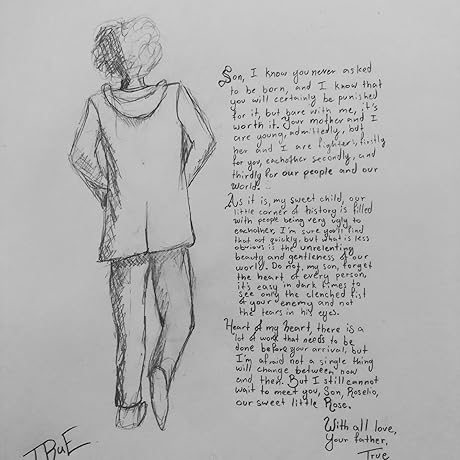 Son, I know you never asked
to be born, and I know that
you will certainly be punished
for it, but bare with me, it's
worth it. Your mother and I
are young, admittedly, but
her and I are fighters, firstly
for you, eachother secondly, and
thirdly for our people and our
world.
As it is, my sweet child, our
little corner of history is filled
with people being very ugly to
eachother. I'm sure you'll find
that out quickly, but what is less
obvious is the unrelenting
beauty and gentleness of our
world. Do not, my son, forget
the heart of every person,
it's easy in dark times to
see only the clenched fist
of your enemy and not
the tears in his eyes.
Heart of my heart, there is a
lot of work that needs to be
done before your arrival, but
I'm afraid not a single thing
will change between now
and then. But I still cannot
wait to meet you, Son, Roselio,
our sweet little Rose.
With all love,
Your father,
True
TRuE